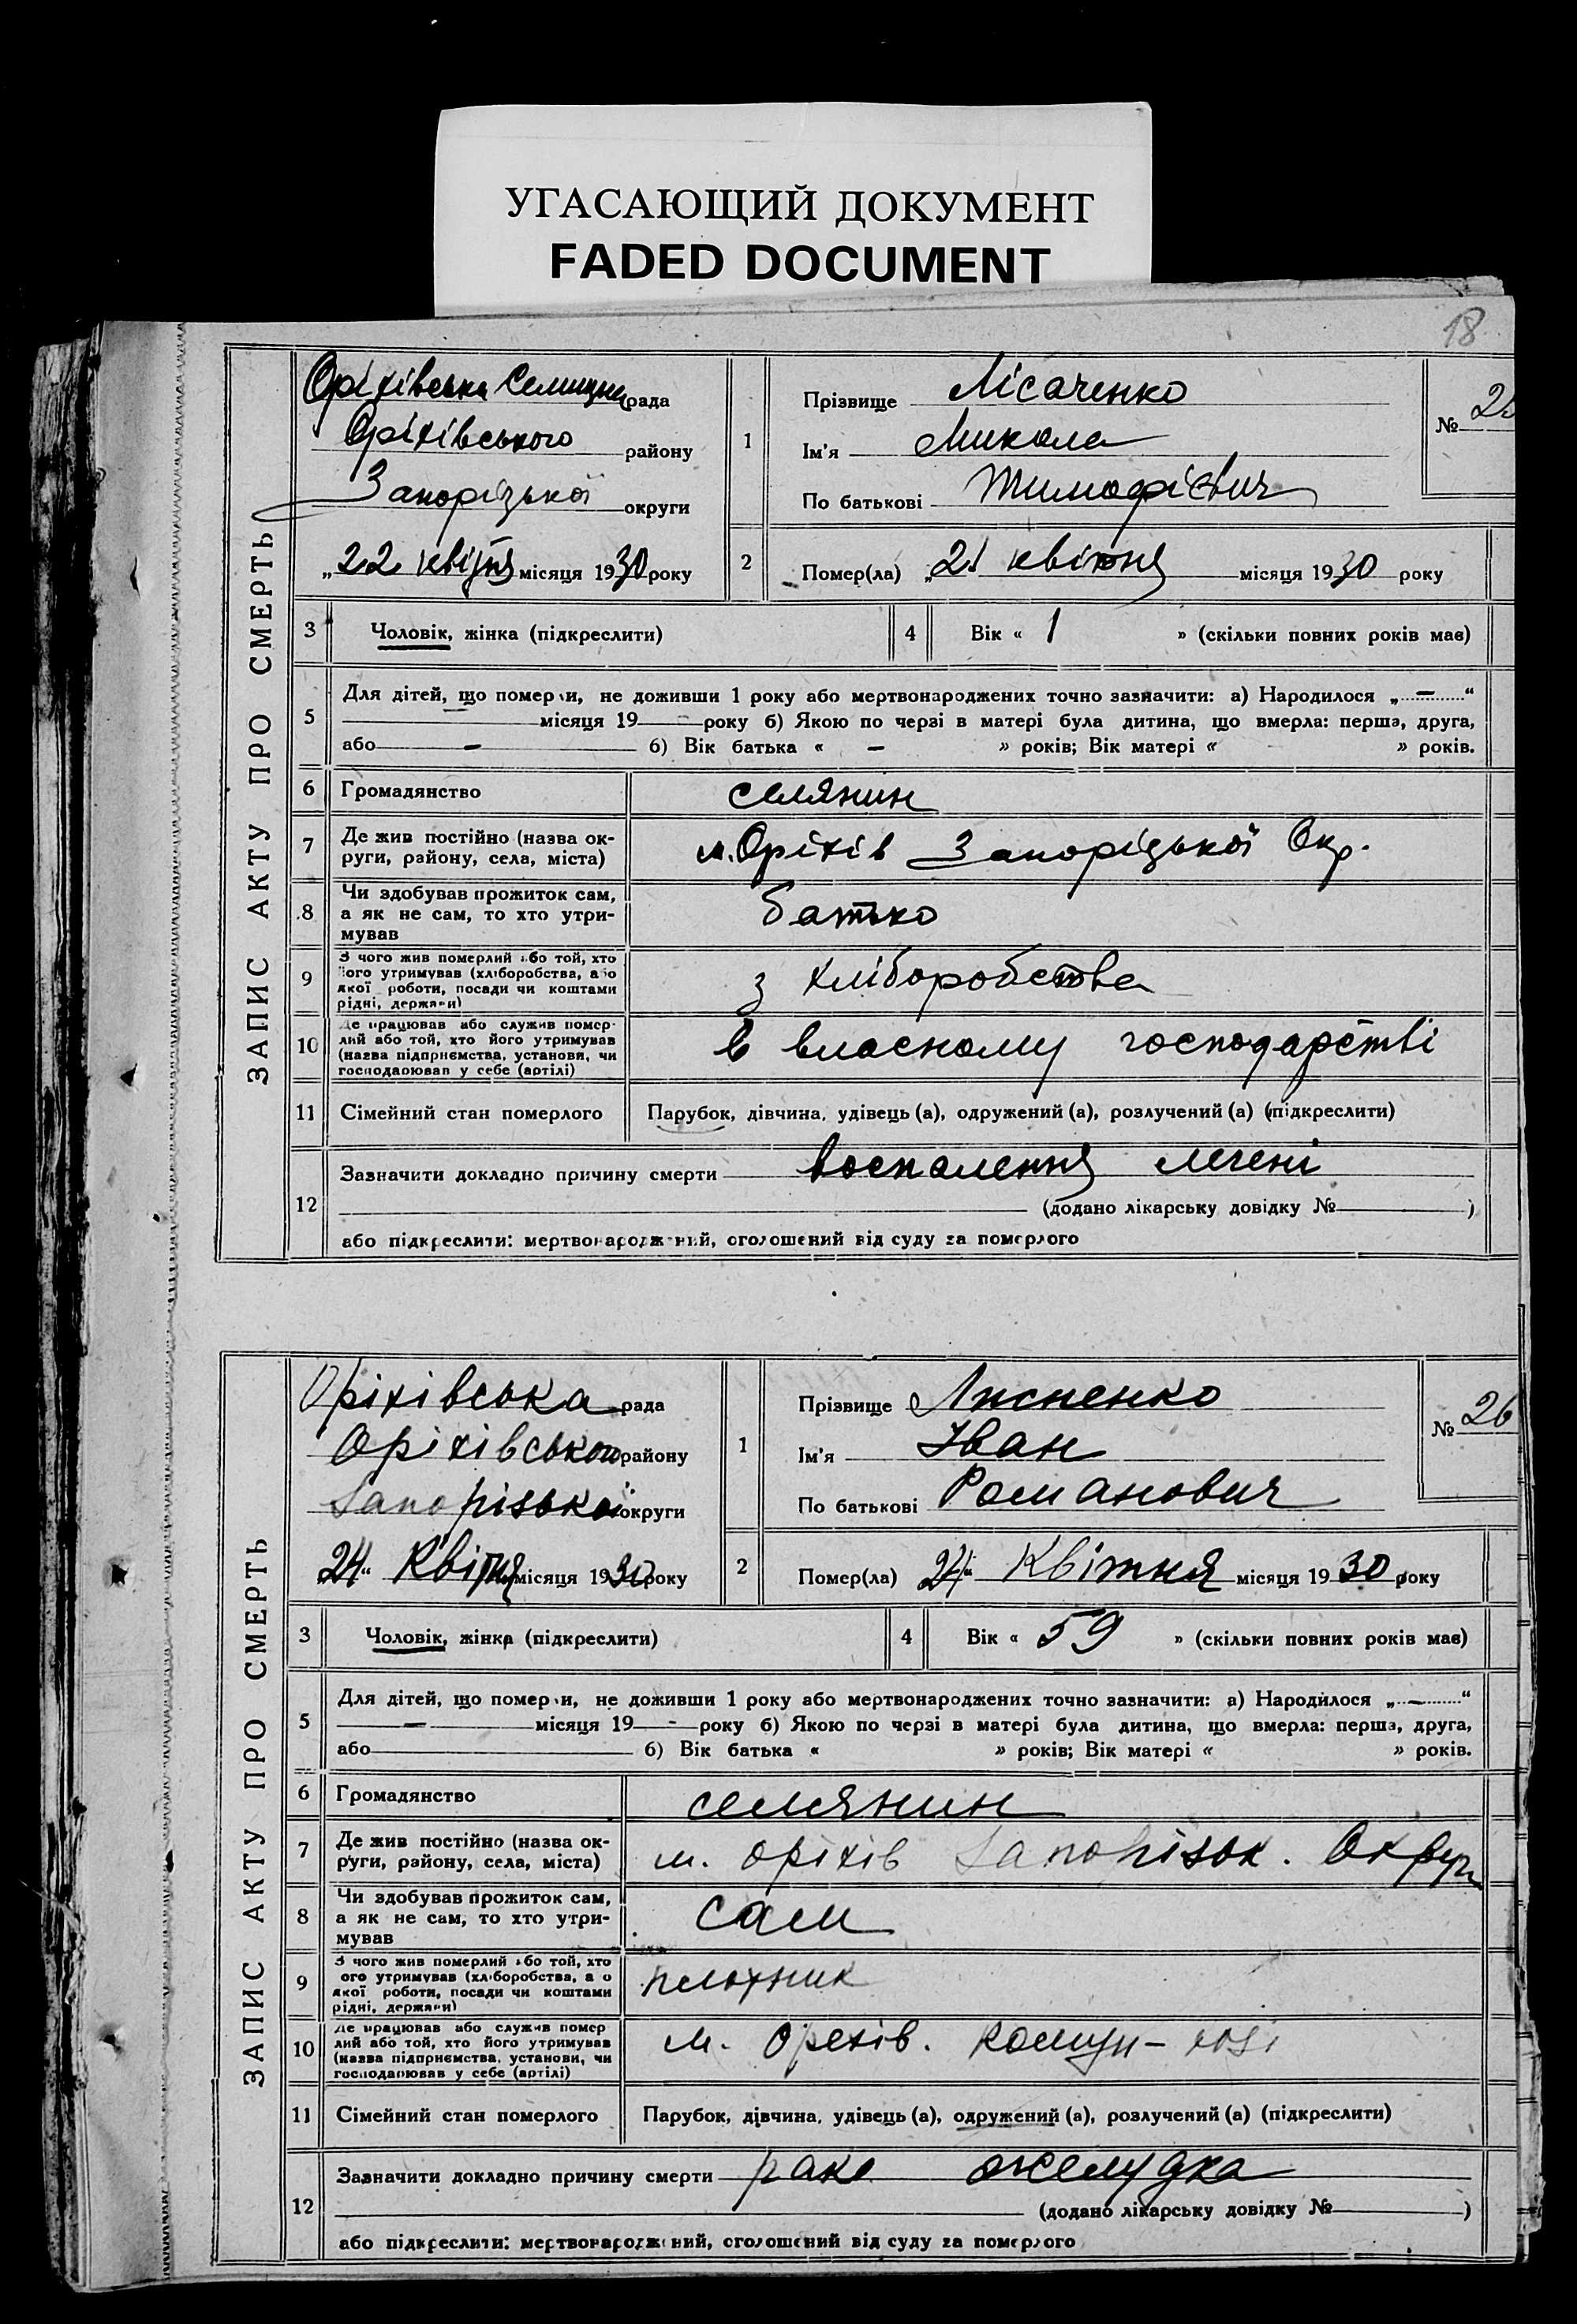 УГАСАЮЩИЙ ДОКУМЕНТ
FADED DOCUMENT
18
ЗАПИС АКТУ ПРО СМЕРТЬ
Оріхівська Селищна рада
Оріхівського району
Запорізької округи
„22 квітня місяця 1930 року
1
Прізвище Лісаченко
Ім'я Микола
По батькові Тимофієвич
№ 25
2
Помер(ла) „21 квітня місяця 1930 року
3 Чоловік, жінка (підкреслити)
4 Вік « 1 » (скільки повних років має)
5 Для дітей, що померли, не доживши 1 року або мертвонароджених точно зазначити: а) Народилося „ — “
місяця 19 — року б) Якою по черзі в матері була дитина, що вмерла: перша, друга,
або — б) Вік батька « — » років; Вік матері « » років.
6 Громадянство селянин
7 Де жив постійно (назва округи, району, села, міста) м. Оріхів Запорізької Окр.
8 Чи здобував прожиток сам, а як не сам, то хто утримував батько
9 З чого жив померлий або той, хто його утримував (хліборобства, або якої роботи, посади чи коштами рідні, держави) з хліборобства
10 Де працював або служив померлий або той, хто його утримував (назва підприємства, установи, чи господарював у себе (артілі) в власному господарстві
11 Сімейний стан померлого Парубок, дівчина, удівець (а), одружений (а), розлучений (а) (підкреслити)
12 Зазначити докладно причину смерти воспалення легені
(додано лікарську довідку № )
або підкреслити: мертвонароджений, оголошений від суду за померлого
ЗАПИС АКТУ ПРО СМЕРТЬ
Оріхівська рада
Оріхівського району
Запорізької округи
„24“ Квітня місяця 1930 року
1
Прізвище
Ім'я Іван
По батькові Романович
№ 26
2
Помер(ла) 24“ Квітня місяця 1930 року
3 Чоловік, жінка (підкреслити)
4 Вік « 59 » (скільки повних років має)
5 Для дітей, що померли, не доживши 1 року або мертвонароджених точно зазначити: а) Народилося „ — “
— місяця 19 - року б) Якою по черзі в матері була дитина, що вмерла: перша, друга,
або б) Вік батька « » років; Вік матері « » років.
6 Громадянство селянин
7 Де жив постійно (назва округи, району, села, міста) м. Оріхів Запорізьк. Округи
8 Чи здобував прожиток сам, а як не сам, то хто утримував сам
9 З чого жив померлий або той, хто його утримував (хліборобства, або якої роботи, посади чи коштами рідні, держави) плотник
10 Де працював або служив померлий або той, хто його утримував (назва підприємства, установи, чи господарював у себе (артілі) м. Орехів. Комун-хозі
11 Сімейний стан померлого Парубок, дівчина, удівець (а), одружений (а), розлучений (а) (підкреслити)
12 Зазначити докладно причину смерти рака желудка
(додано лікарську довідку № )
або підкреслити: мертвонароджений, оголошений від суду за померлого